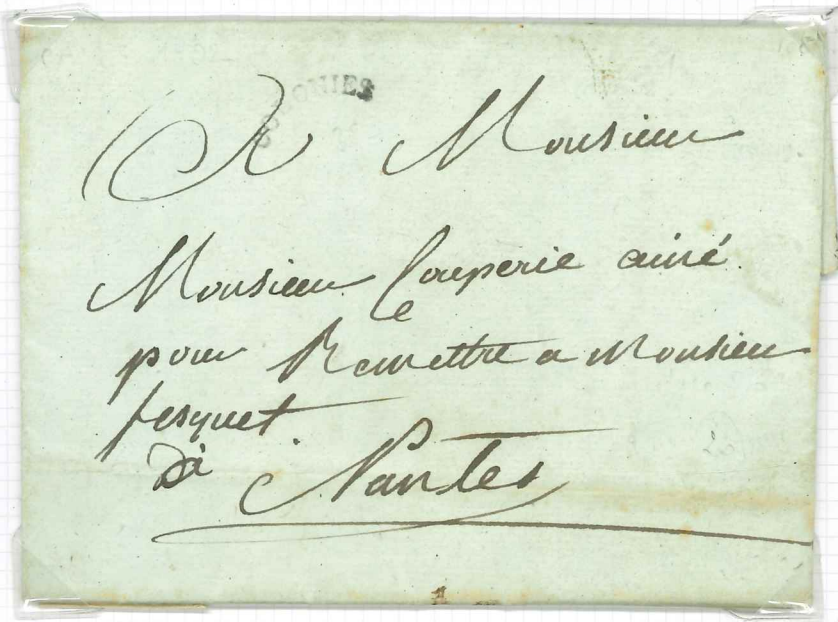 A Monsieur
Monsieur Couperie ainé
pour Remettre a Monsieur
fesquet
à Nantes